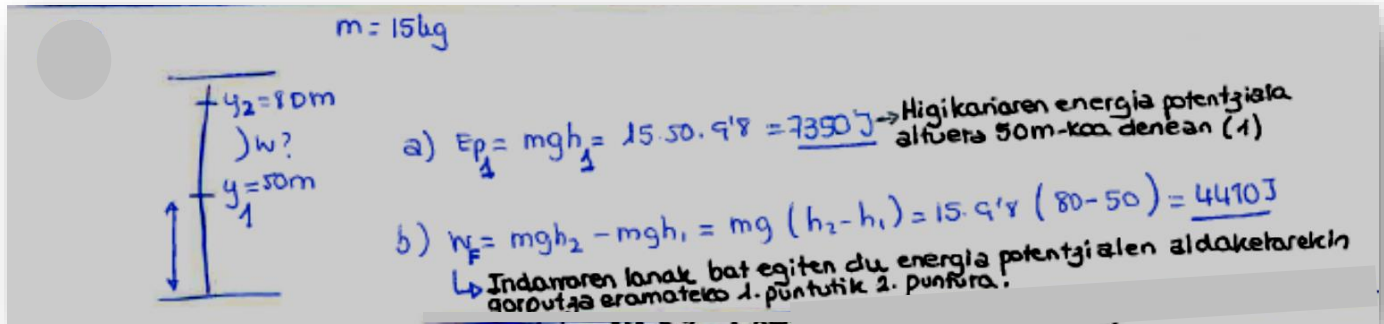 m = 15kg
y2 = 80m
) W?
y1 = 50m
a) Ep1 = mgh1 = 15·50·9'8 = 7350 J → Higikariaren energia potentziala
altuera 50m-koa denean (1)
b) WF = mgh2 - mgh1 = mg (h2-h1) = 15·9'8 (80-50) = 4410J
↳ Indarraren lanak bat egiten du energia potentzialen aldaketarekin
gorputza eramateko 1. puntutik 2. puntura.